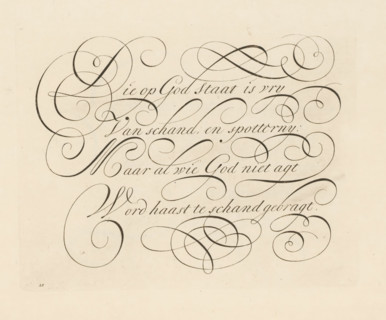 Die op God staat is vry
Van schand, en spotterny:
Maar al wie God niet agt
Word haast te schand gebragt